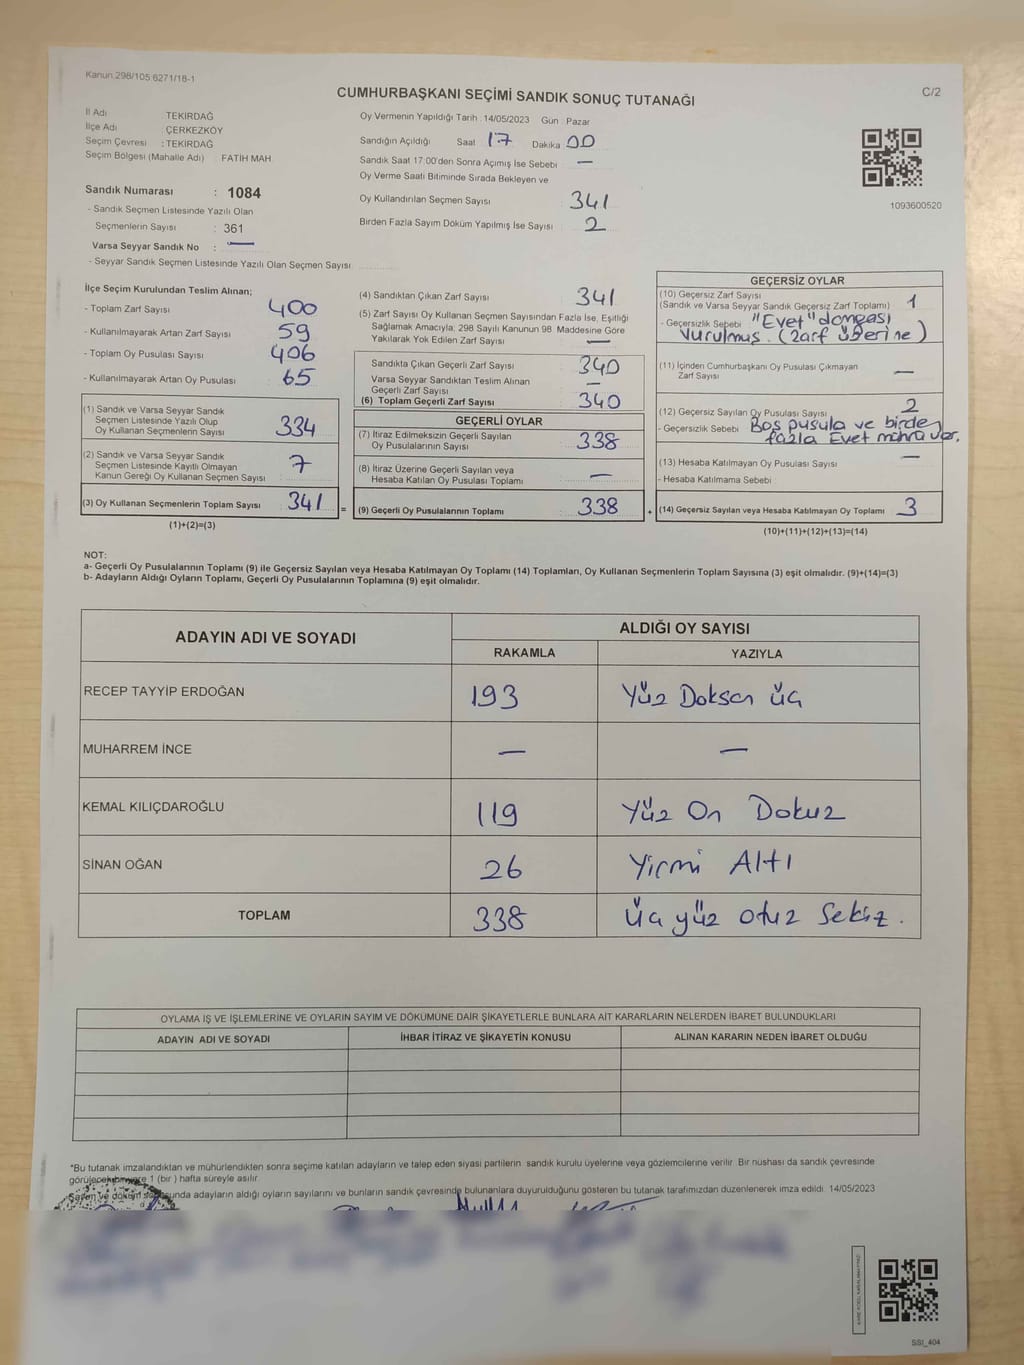 Kanun 298/105 6271/18-1
CUMHURBAŞKANI SEÇİMİ SANDIK SONUÇ TUTANAĞI
C/2
İl Adı : TEKİRDAĞ
İlçe Adı : ÇERKEZKÖY
Seçim Çevresi : TEKİRDAĞ
Seçim Bölgesi (Mahalle Adı) : FATİH MAH.
Sandık Numarası : 1084
- Sandık Seçmen Listesinde Yazılı Olan
Seçmenlerin Sayısı : 361
Varsa Seyyar Sandık No : —
- Seyyar Sandık Seçmen Listesinde Yazılı Olan Seçmen Sayısı
Oy Vermenin Yapıldığı Tarih : 14/05/2023 Gün : Pazar
Sandığın Açıldığı Saat 17 Dakika 00
Sandık Saat 17:00'den Sonra Açımış İse Sebebi —
Oy Verme Saati Bitiminde Sırada Bekleyen ve
Oy Kullandırılan Seçmen Sayısı 341
Birden Fazla Sayım Döküm Yapılmış İse Sayısı 2
1093600520
İlçe Seçim Kurulundan Teslim Alınan;
- Toplam Zarf Sayısı 400
- Kullanılmayarak Artan Zarf Sayısı 59
- Toplam Oy Pusulası Sayısı 406
- Kullanılmayarak Artan Oy Pusulası 65
(1) Sandık ve Varsa Seyyar Sandık
Seçmen Listesinde Yazılı Olup
Oy Kullanan Seçmenlerin Sayısı 334
(2) Sandık ve Varsa Seyyar Sandık
Seçmen Listesinde Kayıtlı Olmayan
Kanun Gereği Oy Kullanan Seçmen Sayısı 7
(3) Oy Kullanan Seçmenlerin Toplam Sayısı 341 =
(1)+(2)=(3)
(4) Sandıktan Çıkan Zarf Sayısı 341
(5) Zarf Sayısı Oy Kullanan Seçmen Sayısından Fazla İse, Eşitliği
Sağlamak Amacıyla; 298 Sayılı Kanunun 98. Maddesine Göre
Yakılarak Yok Edilen Zarf Sayısı —
Sandıkta Çıkan Geçerli Zarf Sayısı 340
Varsa Seyyar Sandıktan Teslim Alınan
Geçerli Zarf Sayısı —
(6) Toplam Geçerli Zarf Sayısı 340
GEÇERLİ OYLAR
(7) İtiraz Edilmeksizin Geçerli Sayılan
Oy Pusulalarının Sayısı 338
(8) İtiraz Üzerine Geçerli Sayılan veya
Hesaba Katılan Oy Pusulası Toplamı —
(9) Geçerli Oy Pusulalarının Toplamı 338 +
GEÇERSİZ OYLAR
(10) Geçersiz Zarf Sayısı
(Sandık ve Varsa Seyyar Sandık Geçersiz Zarf Toplamı) 1
- Geçersizlik Sebebi "Evet" damgası
Vurulmuş. (zarf üzerine)
(11) İçinden Cumhurbaşkanı Oy Pusulası Çıkmayan
Zarf Sayısı —
(12) Geçersiz Sayılan Oy Pusulası Sayısı 2
- Geçersizlik Sebebi Boş pusula ve birden
fazla Evet mührü var.
(13) Hesaba Katılmayan Oy Pusulası Sayısı —
- Hesaba Katılmama Sebebi
(14) Geçersiz Sayılan veya Hesaba Katılmayan Oy Toplamı 3
(10)+(11)+(12)+(13)=(14)
NOT:
a- Geçerli Oy Pusulalarının Toplamı (9) ile Geçersiz Sayılan veya Hesaba Katılmayan Oy Toplamı (14) Toplamları, Oy Kullanan Seçmenlerin Toplam Sayısına (3) eşit olmalıdır. (9)+(14)=(3)
b- Adayların Aldığı Oyların Toplamı, Geçerli Oy Pusulalarının Toplamına (9) eşit olmalıdır.
ADAYIN ADI VE SOYADI
ALDIĞI OY SAYISI
RAKAMLA YAZIYLA
RECEP TAYYİP ERDOĞAN 193 Yüz Doksan üç
MUHARREM İNCE — —
KEMAL KILIÇDAROĞLU 119 Yüz On Dokuz
SİNAN OĞAN 26 Yirmi Altı
TOPLAM 338 Üç yüz otuz Sekiz.
OYLAMA İŞ VE İŞLEMLERİNE VE OYLARIN SAYIM VE DÖKÜMÜNE DAİR ŞİKAYETLERLE BUNLARA AİT KARARLARIN NELERDEN İBARET BULUNDUKLARI
ADAYIN ADI VE SOYADI İHBAR İTİRAZ VE ŞİKAYETİN KONUSU ALINAN KARARIN NEDEN İBARET OLDUĞU
*Bu tutanak imzalandıktan ve mühürlendikten sonra seçime katılan adayların ve talep eden siyasi partilerin sandık kurulu üyelerine veya gözlemcilerine verilir. Bir nüshası da sandık çevresinde
1 (bir) hafta süreyle asılır.
adayların aldığı oyların sayılarını ve bunların sandık çevresinde bulunanlara duyurulduğunu gösteren bu tutanak tarafımızdan düzenlenerek imza edildi. 14/05/2023
SSI_404